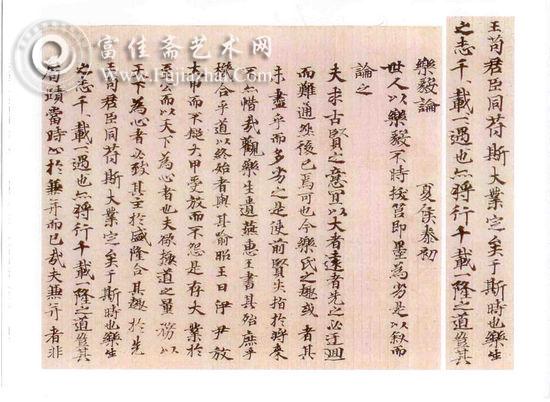 王苟君臣同符斯大業定矣于斯時也樂生
之志千載一遇也亦將行千載一隆之道豈其
樂毅論 夏侯泰初
世人以樂毅不時拔莒即墨為劣是以叙而
論之
夫求古賢之意宜以大者遠者先之必迂迴
而難通然後已焉可也今樂氏之趣或者其
未盡乎而多劣之是使前賢失指於將來
不亦惜哉觀樂生遺燕惠王書其殆庶乎
機合乎道以終始者與其喻昭王曰伊尹放
大甲而不疑大甲受放而不怨是存大業於
至公而以天下為心者也夫欲極道之量務以
天下為心者必致其主於盛隆合其趣於先
王苟君臣同符斯大業定矣于斯時也樂生
之志千載一遇也亦將行千載一隆之道豈其
局蹟當時止於兼并而已哉夫兼并者非
富佳斋艺术网
www.Fujiazhai.com